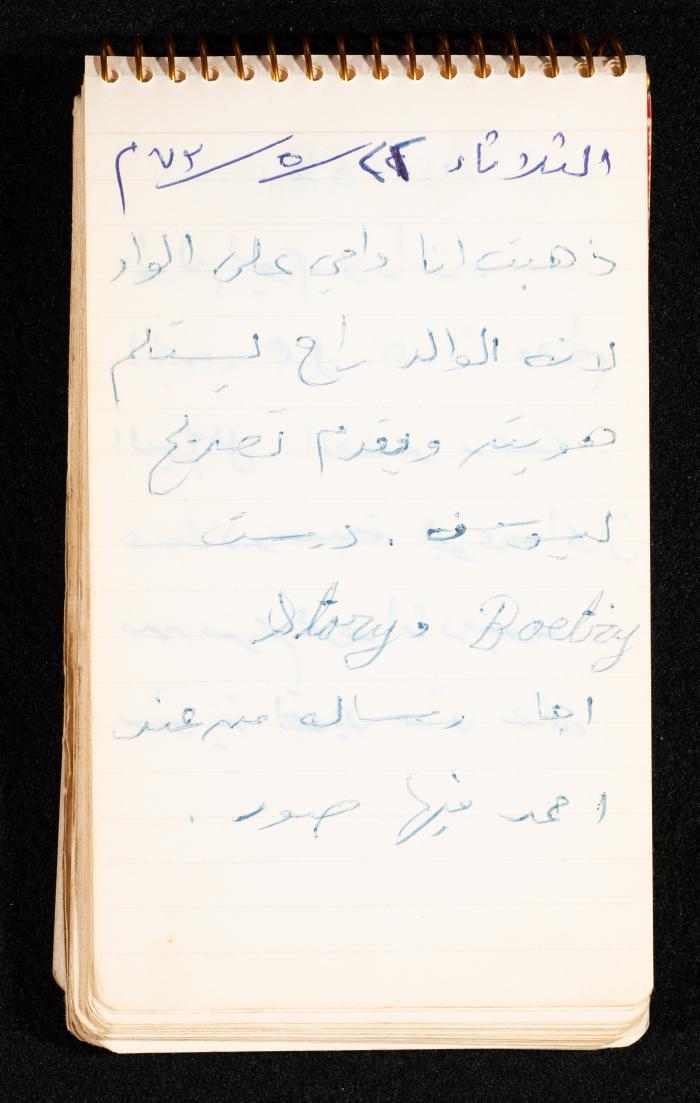 الثلاثاء ٢٢/٥/٧٣م
ذهبت انا وامي على الواد
لانه الوالد راح ليستلم
هويته ويقدم تصريح
ليوسف . درست
Boetry و Story
اجا رساله من عند
احمد فيها صور .